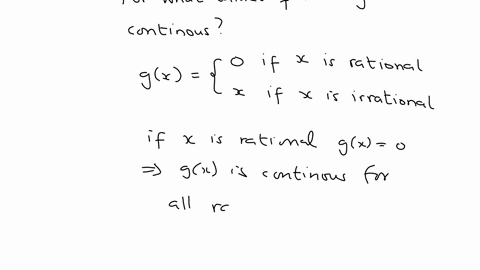 continous?
g(x) = { 0 if x is rational
x if x is irrational
if x is rational g(x) = 0
⇒ g(x) is continous for
all